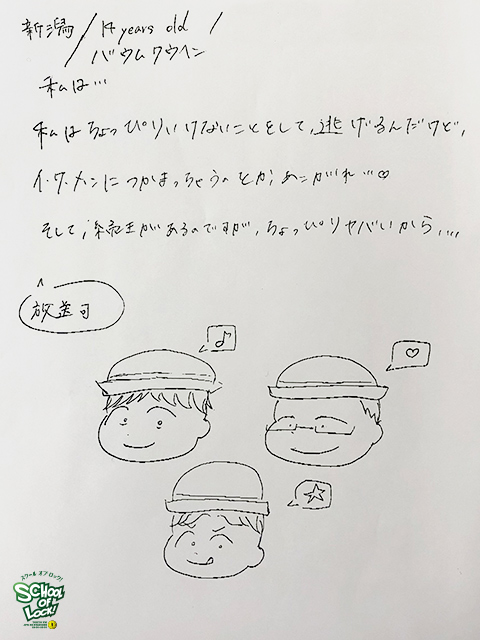 新潟 / 14 years old /
/ バウムクウヘン
私は…
私はちょっぴりいけないことをして、逃げるんだけど、
イ・ケ・メンにつかまっちゃうのとか、あこがれ…♡
そして、があるのですが、ちょっぴりヤバいから、…
放送可
♪
♡
☆
スクール オブ ロック!
SCHOOL
OF
LOCK!